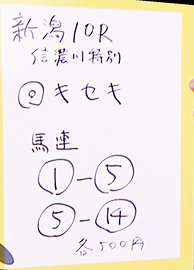 新潟10R
信濃川特別
◎キセキ
馬連
①-⑤
⑤-⑭
各500円